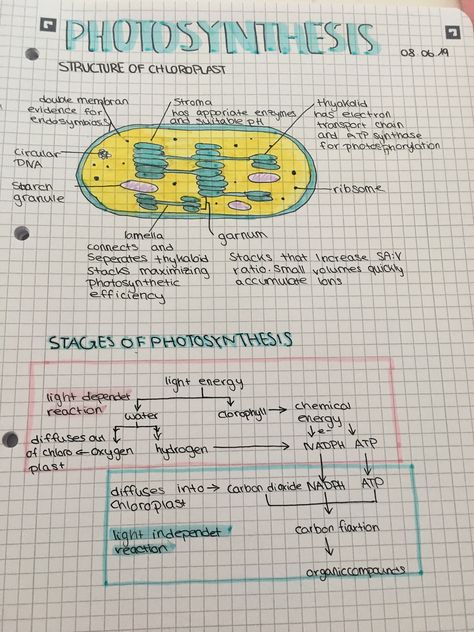 PHOTOSYNTHESIS
08.06.19
STRUCTURE OF CHLOROPLAST
double membran
evidence for
endosymbiosis
Stroma
has apporiate enzymes
and suitable pH
thyakolid
has electron
transport chain
and ATP synthase
for photosphorylation
circular
DNA
Starch
granule
ribsome
lamella
connects and
Seperates thykaloid
Stacks maximizing
photosynthetic
efficiency
garnum
Stacks that increase SA:V
ratio. Small volumes quickly
accumulate ions
STAGES OF PHOTOSYNTHESIS
light energy
light dependet
reaction
water
clorophyll
chemical
energy
e-
diffuses out
of chloro
plast
oxygen
hydrogen
NADPH
ATP
diffuses into
chloroplast
carbon dioxide
NADPH
ATP
light independet
reaction
carbon fiartion
organic compounds